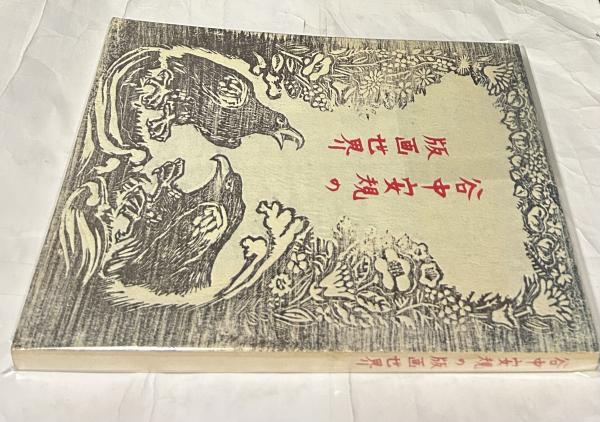 谷中安規の
版画世界
谷中安規の版画世界